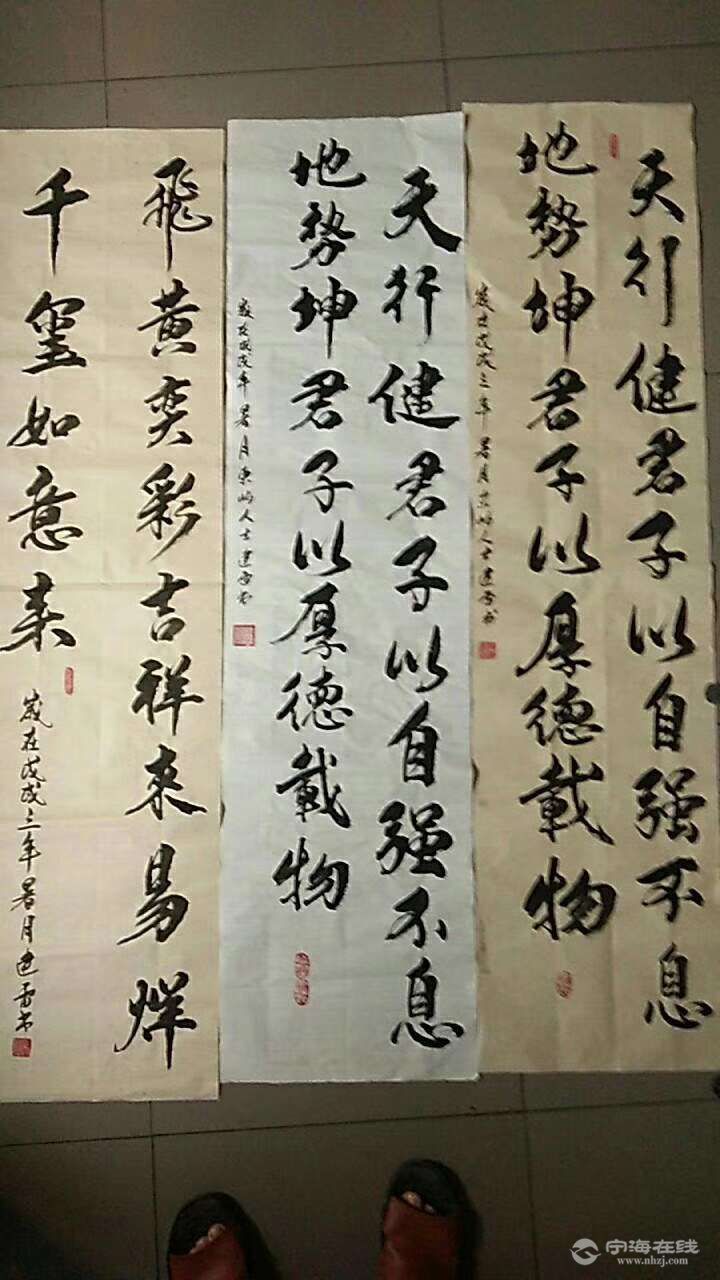 天行健君子以自强不息
地势坤君子以厚德载物
歲在戊戌之年暑月东屿人士建雷书
天行健君子以自强不息
地势坤君子以厚德载物
歲在戊戌年暑月东屿人士建雷书
飛黄奕彩吉祥来易烊
千玺如意来
歲在戊戌之年暑月建雷书
宁海在线
www.nhzj.com